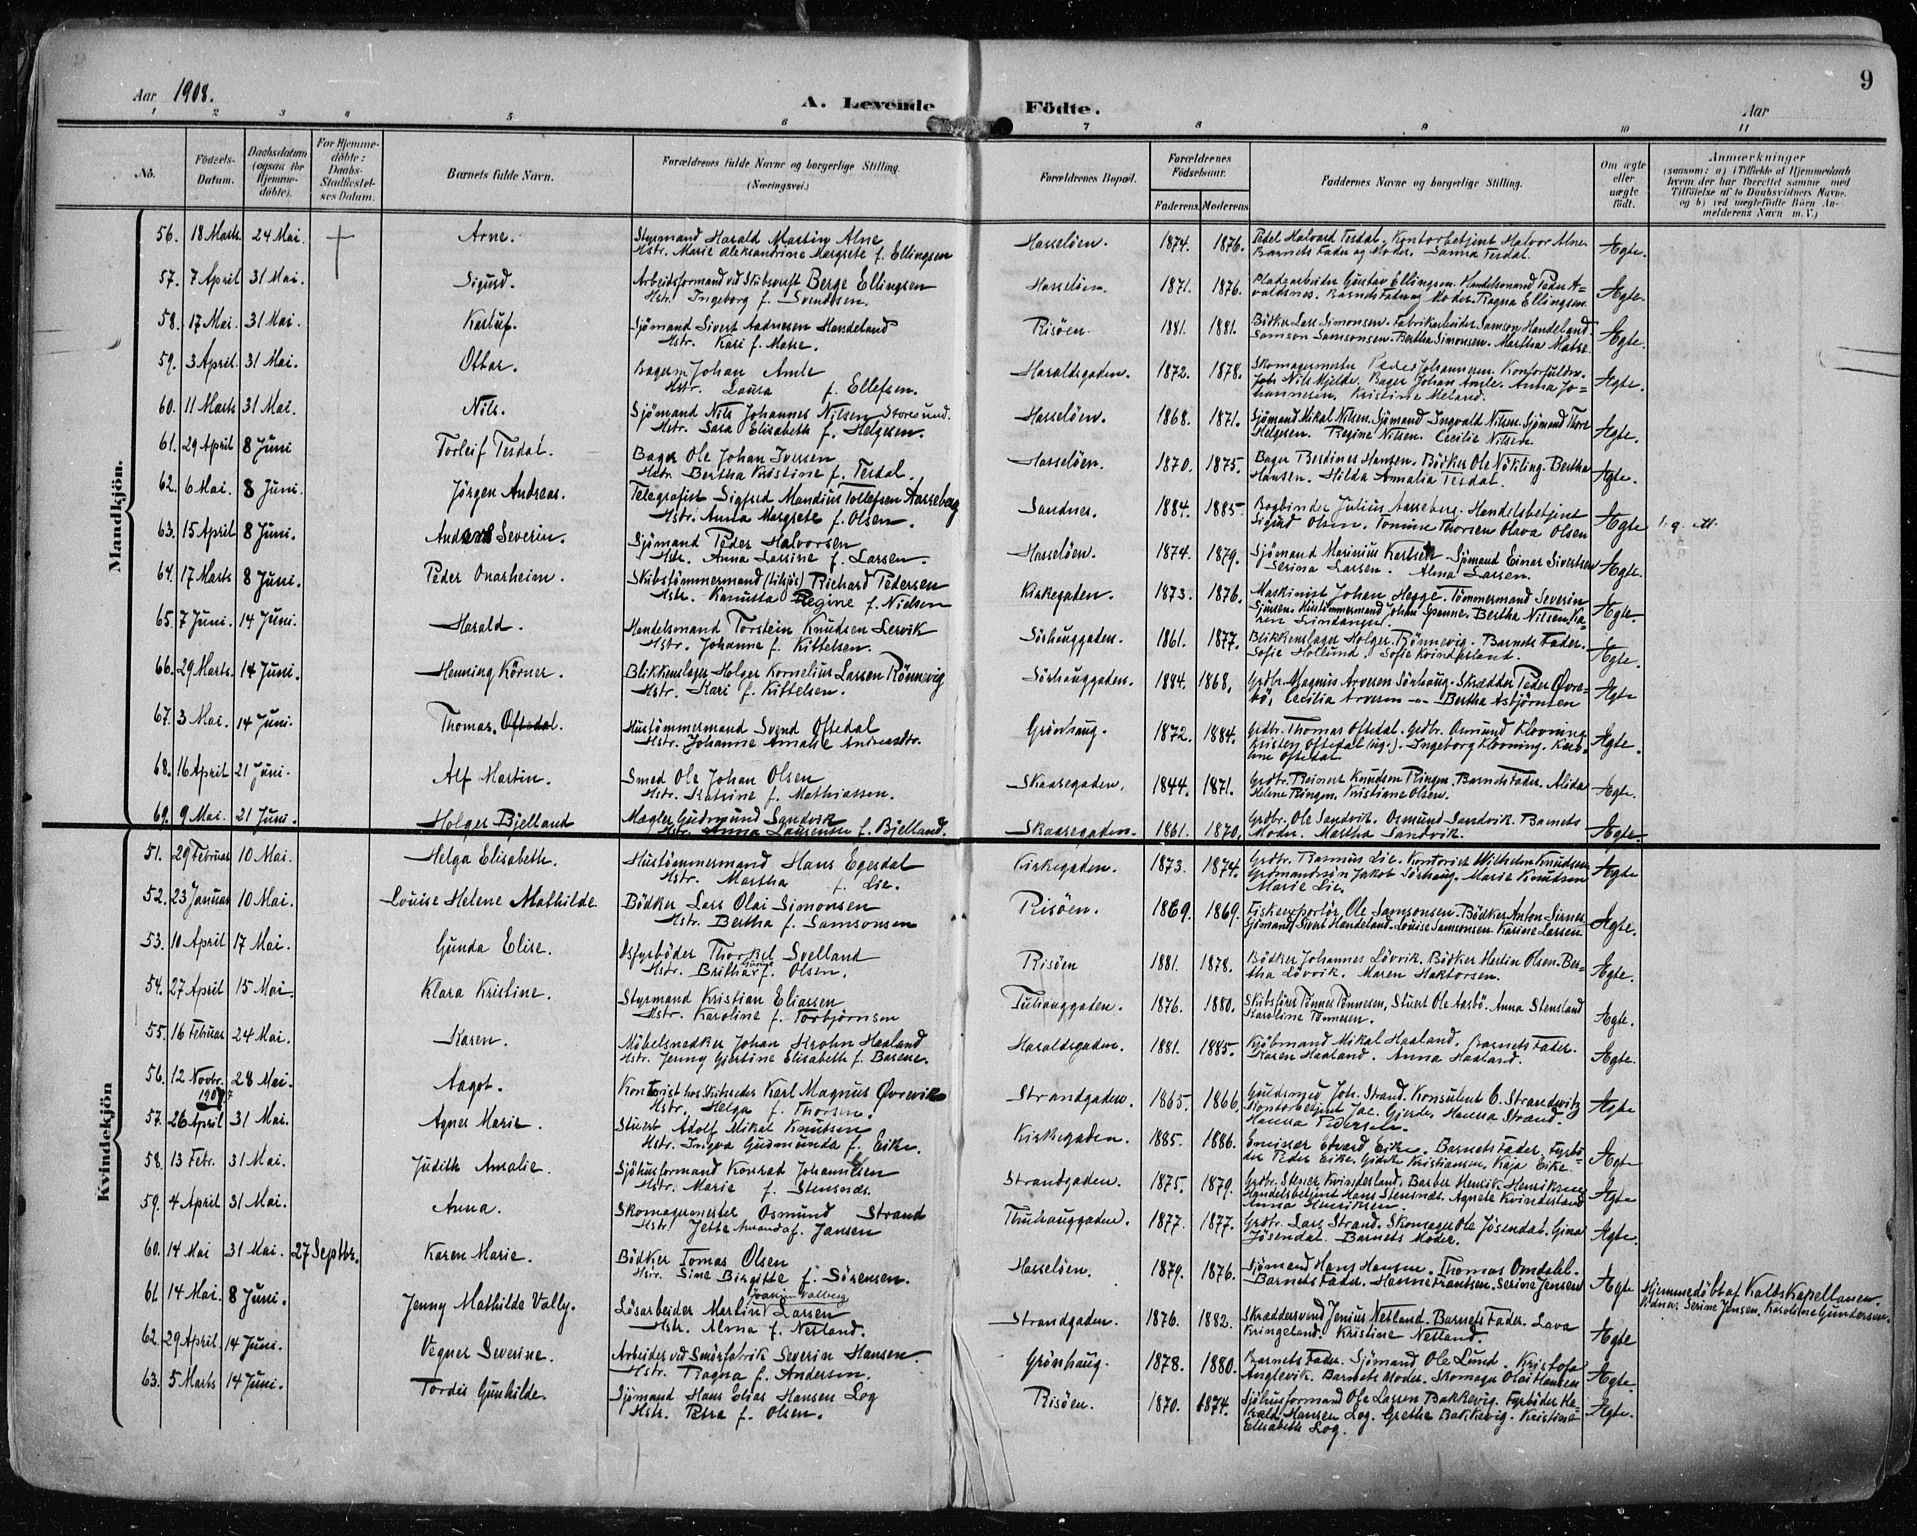 Aar 1908.
A. Levende Födte.
Aar
9
1 2 3 4 5 6 7 8 9 10 11
No.
Födsels-Datum.
Daabsdatum (ogsaa for Hjemmedöbte).
For Hjemmedöbte: Daabs-Stadfæstelses Datum.
Barnets fulde Navn.
Forældrenes fulde Navne og borgerlige Stilling. (Næringsvei.)
Forældrenes Bopæl.
Forældrenes Födselsaar.
Faderens. Moderens.
Faddernes Navne og borgerlige Stilling.
Om ægte eller uægte födt.
Anmærkninger
(saasom: a) i Tilfælde af Hjemmedaab
hvem der har forrettet samme med
Tilföielse af to Daabsvidners Navne,
og b) ved uægtefödte Börn An-
melderens Navn m. V.)
Mandkjön.
56. 18 Marts 24 Mai Arne. Styrmand Harald Martin Alne Hasseløen. 1874. 1876. Pedel Halvard Tesdal. Kontorbetjent Halvor Alne. Ægte.
Hstr. Marie Aleksandrine Margrete f. Ellingsen Barnets Fader og Moder. Sanna Tesdal.
57. 7 April 31 Mai. Sigurd. Arbeidsformand ved Berge Ellingsen Hasseløen. 1871. 1876. Pladearbeider Gustav Ellingsen. Handelsmand Peder A- Ægte.
Hstr. Ingeborg f. Svendsen. valdsnes. Barnets Fader og Moder. Ragna Ellingsen.
58. 17 Mai. 31 Mai. Karluf. Sjömand Sivert Aadnesen Handeland Risöen. 1881. 1881. Bödker Lars Simonsen. Fabrikarbeider Samson Handeland. Ægte.
Hstr. Kari f. Matre. Samson Samsonsen. Bertha Simonsen. Martha Matre.
59. 3 April 31 Mai. Ottar. Bagerm Johan Amle Haraldsgaden. 1872. 1878. Skomagermester Peder Johannesen. Ægte.
Hstr. Laura f. Ellefsen. Nils Mjelde. Bager Johan Amle. Anna Jo-
hannesen. Kristine Meland.
60. 11 Marts 31 Mai. Nils. Sjömand Nils Johannes Nilsen Storesund. Hasseløen. 1868. 1871. Sjömand Mikal Nilsen. Sjömand Ingvald Nilsen. Sjömand Thore Ægte.
Hstr. Sara Elisabeth f. Helgesen. Helgesen. Regine Nilsen. Cecilie Nilsen.
61. 29 April 8 Juni Torleif Tesdal. Bager Ole Johan Iversen Hasseløen. 1870. 1875. Bager Berdines Hansen. Bödker Ole Nökling. Bertha Ægte.
Hstr. Bertha Kristine f. Tesdal. Hansen. Hilda Amalia Tesdal.
62. 6 Mai. 8 Juni. Jörgen Andreas. Telegrafist Sigfred Mandius Tollefsen Aarseberg Sandnes. 1884. 1885. Bogbinder Julius Aarseberg. Handelsbetjent Ægte
Hstr. Anna Margrete f. Olsen. Sigurd Olsen. Tomine Thorsen Olava Olsen
63. 15 April 8 Juni. Severin. Sjömand Peder Halvorsen Hasseløen. 1874. 1879. Sjömand Marinius Karlsen. Sjömand Einar Sivertsen Ægte.
Hstr. Anna Larsine f. Larsen. Serina Larsen. Alma Larsen.
64. 17 Marts 8 Juni. Peder Onarheim. Skibstömmermand (tilsjös) Richard Pedersen Kirkegaden. 1873. 1876. Maskinist Johan Hegge. Tömmermand Severin Ægte.
Hstr. Kanutta Regine f. Nielsen Sjursen. Hustömmermand Johan Spanne. Bertha Nilsen.
65. 7 Juni. 14 Juni. Harald. Handelsmand Torstein Knudsen Lervik Sörhauggaden. 1861. 1877. Blikkenslager Holger Rönnevig. Barnets Fader. Ægte.
Hstr. Johanne f. Kittelsen. Sofie Hollund. Sofie Kvindesland.
66. 29 Marts 14 Juni. Henning Körner. Blikkenslager Holger Kornelius Larsen Rönnevig Sörhauggaden. 1884. 1868. Grdbr. Magnus Arvesen Sörhaug. Skrædder Peder Øvre- Ægte
Hstr. Kari f. Kittelsen. bö, Cecilia Arvesen Bertha Asbjörnsen
67. 3 Mai. 14 Juni. Thomas. Oftedal. Hustömmermand Svend Oftedal Grönhaug. 1872. 1884. Grdbr. Thomas Oftedal. Grdbr. Osmund Klovning. Ægte.
Hstr. Johanne Amalie Andreasdtr. Kristen Oftedal (ug.). Ingeborg Klovning. Karo-
line Oftedal.
68. 16 April 21 Juni. Alf Martin. Smed Ole Johan Olsen Skaaregaden. 1844. 1871. Grdbr. Reinert Knudsen Ringen. Barnets Fader. Alida Ægte.
Hstr. Katrine f. Mathiassen. Helene Ringen. Kristiane Olsen.
69. 9 Mai. 21 Juni. Holger Bjelland Mægler Gudmund Sandvik Skaaregaden. 1861. 1870. Grdbr. Ole Sandvik. Osmund Sandvik. Barnets Ægte.
Hstr. Anna Laurense f. Bjelland. Moder. Martha Sandvik.
Kvindekjön
51. 29 Februar 10 Mai. Helga Elisabeth. Hustömmermand Hans Egesdal Kirkegaden. 1873. 1874. Grdbr. Rasmus Lie. Kontorist Wilhelm Knudsen Ægte
Hstr. Martha f. Lie. Grdmandssön Jakob Sörhaug. Marie Knudsen
Marie Lie.
52. 23 Januar 10 Mai. Louise Helene Mathilde Bödker Lars Olai Simonsen Risöen. 1869. 1869. Fiskeexportör Ole Samsonsen. Bödker Anton Sirnes. Ægte.
Hstr. Bertha f. Samsonsen Sjömand Sivert Handeland. Louise Samsonsen. Karine Larsen
53. 10 April 17 Mai. Gunda Elise. Thorkel Svelland Risöen 1881. 1878. Bödker Johannes Lövvik. Bödker Herlin Olsen. Ber- Ægte.
Hstr. Britha f. Olsen. tha Lövvik. Maren Haktorsen.
54. 27 April 15 Mai. Klara Kristine. Styrmand Kristian Eliassen Tuhauggaden. 1876. 1880. Skibsförer Tönnes Tönnesen, Stuert Ole Aasbö. Anna Stensland Ægte.
Hstr. Karoline f. Torbjørnsen Karoline Tönnesen.
55. 16 Februar 24 Mai. Karen. Möbelsnedker Johan Krohn Haaland Haraldsgaden. 1881. 1885. Kjöbmand Mikal Haaland. Barnets Fader. Ægte.
Hstr. Jenny Gjertine Elisabeth f. Barene. Karen Haaland. Anna Haaland.
56. 12 Novbr. 1907 28 Mai. Aagot. Kontorist hos Skibsreder Karl Magnus Øvrevik Strandgaden. 1865. 1866. Guldsmed Joh. Strand. Konsulent O. Strandwitz Ægte
Hstr. Helga f. Thorsen. Kontorbetjent Jac. Gjerde. Hanna Strand.
Hanna Pedersen.
57. 26 April 31 Mai. Agnes Marie. Stuert Adolf Mikal Knutsen Kirkegaden. 1885. 1886. Emissær Edvard Eike. Barnets Fader. Fyrbö- Ægte
Hstr. Ingva Gudmunda f. Eike. der Peder Eike. Gjerte Kristiansen. Kaja Eike.
58. 13 Febr. 31 Mai. Judith Amalie. Sjöhusformand Konrad Johannesen Strandgaden. 1875. 1879. Grdbr. Stener Kvindesland. Barber Henrik Henriksen. Ægte
Hstr. Marie f. Stensnæs. Handelsbetjent Hans Stensnæs. Agnete Kvindesland
Anna Henriksen.
59. 4 April 31 Mai. Anna. Skomagermester Osmund Strand Thuhauggaden. 1877. 1877. Grdbr. Lars Strand. Skomager Ole Jösendal. Gina Ægte.
Hstr. Jette Amanda f. Jansen Jösendal. Barnets Moder.
60. 14 Mai 31 Mai. 27 Septbr. Karen Marie. Bödker Tomas Olsen Hasseløen. 1879. 1876. Sjömand Hans Hansen. Thomas Omdahl. Ægte Hjemmedöbt af Kaldskapellanen.
Hstr. Sine Birgitte f. Sörensen. Barnets Fader. Hanne Frantsen. Serine Jensen Vidner: Serine Jensen. Karoline Gundersen.
61. 14 Mai. 8 Juni. Jenny Mathilde Vally. Lösarbeider Martin Joakim Valberg Larsen Strandgaden. 1876. 1882. Skræddersvend Jenius Netland. Barnets Fader. Lava Ægte
Hstr. Alma f. Netland. Kringeland. Kristine Netland.
62. 29 April 14 Juni. Vegner Severine. Arbeider ved Smörfabrik Severin Hansen. Grönhaug. 1878. 1880. Barnets Fader. Sjömand Ole Lund. Kristofa Ægte.
Hstr. Ragna f. Andersen. Anglevik. Barnets Moder. Skomager Olai Hansen
63. 5 Marts 14 Juni. Tordis Gunhilde. Sjömand Hans Elias Hansen Log Risöen. 1870. 1874. Sjöhusformand Ole Larsen Bakkevig. Fyrböder He- Ægte.
Hstr. Petra f. Olsen. Hansen Log. Grethe Bakkevig. Kristine
Elisabeth Log.